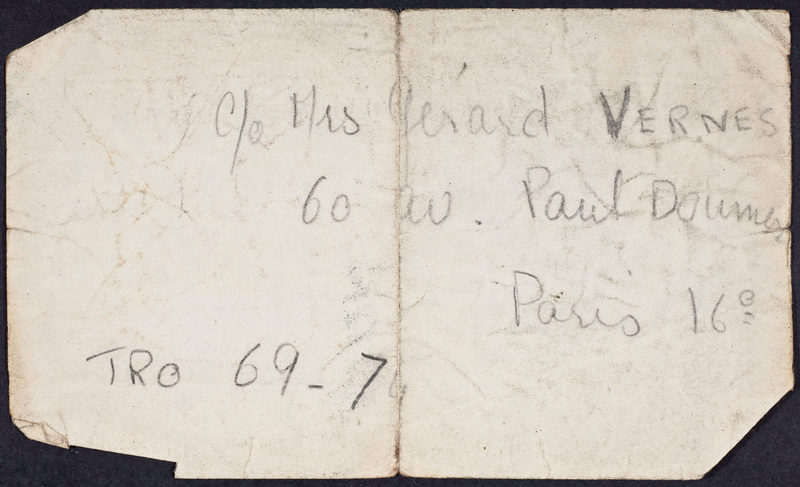 c/o Mrs Gérard VERNES
60 av. Paul Doumer
Paris 16e
TRO 69-74